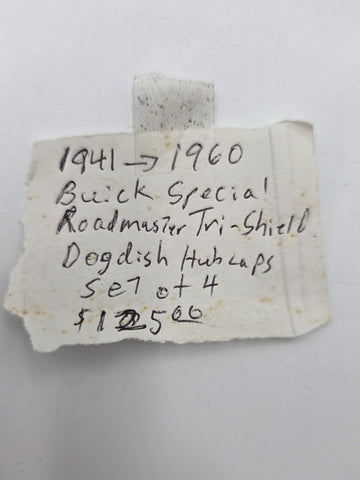 1941 → 1960
Buick Special
Roadmaster Tri-Shield
Dogdish Hubcaps
Set of 4
$125.00